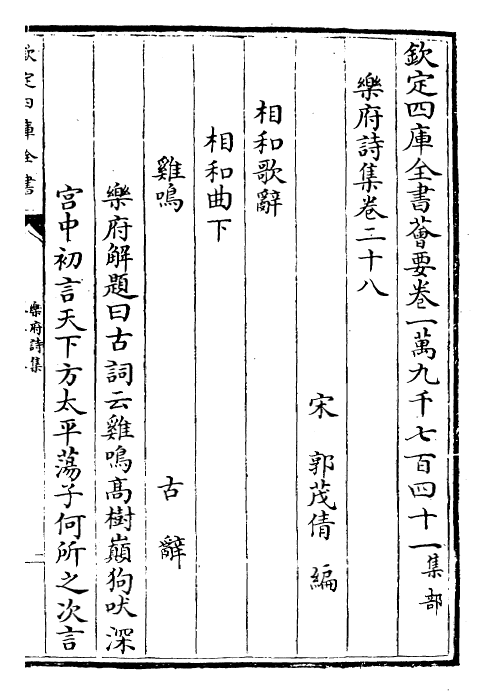 欽定四庫全書薈要卷一萬九千七百四十一集部
樂府詩集卷二十八
宋 郭茂倩 編
相和歌辭
相和曲下
雞鳴 古辭
樂府解題曰古詞云雞鳴高樹巔狗吠深
宫中初言天下方太平蕩子何所之次言
欽定四庫全書
樂府詩集